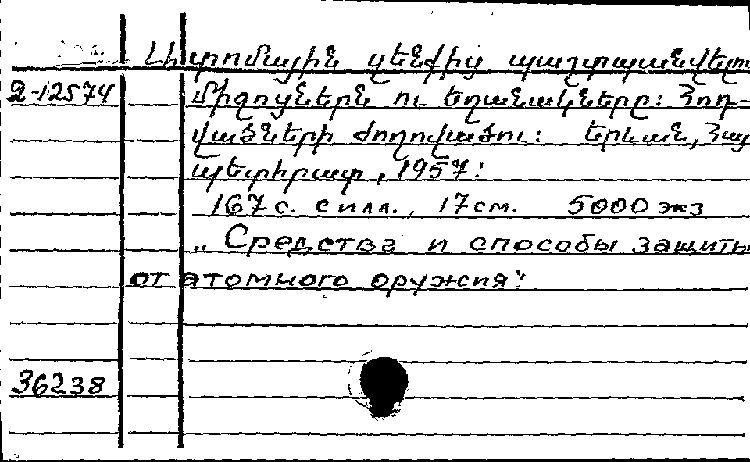 Ատոմային զենքից պաշտպանվելու
2-12574 միջոցներն ու եղանակները: Հոդ-
վածների ժողովածու: Երևան, Հայ
պետհրատ, 1957:
167 с. с илл., 17 см. 5000 экз
„Средства и способы защиты
от атомного оружия":
36238